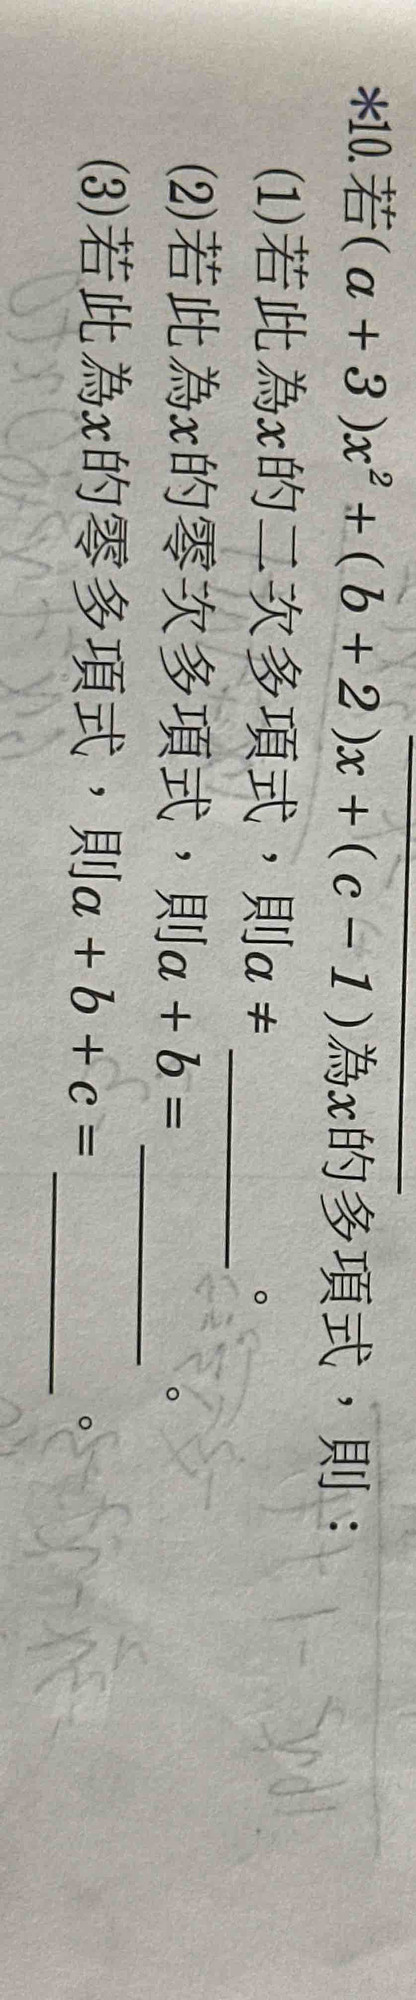 *10.若(a+3)x²+(b+2)x+(c-1)為x的多項式，則：
(1)若此為x的二次多項式，則a≠______。
(2)若此為x的零次多項式，則a+b=______。
(3)若此為x的零多項式，則a+b+c=______。